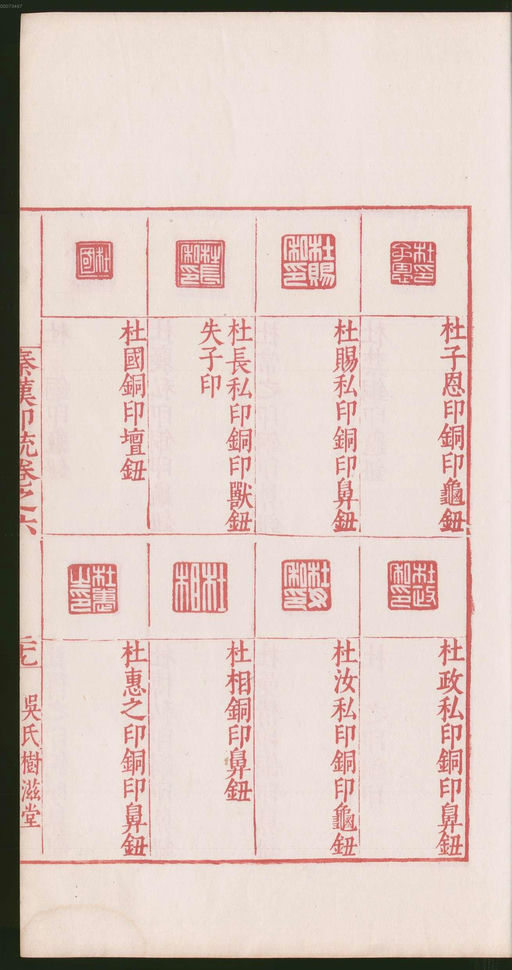 杜子恩印銅印龜鈕
杜賜私印銅印鼻鈕
杜長私印銅印獸鈕
失子印
杜國銅印壇鈕
杜政私印銅印鼻鈕
杜汝私印銅印龜鈕
杜相銅印鼻鈕
杜惠之印銅印鼻鈕
秦漢印統卷之六
吳氏樹滋堂